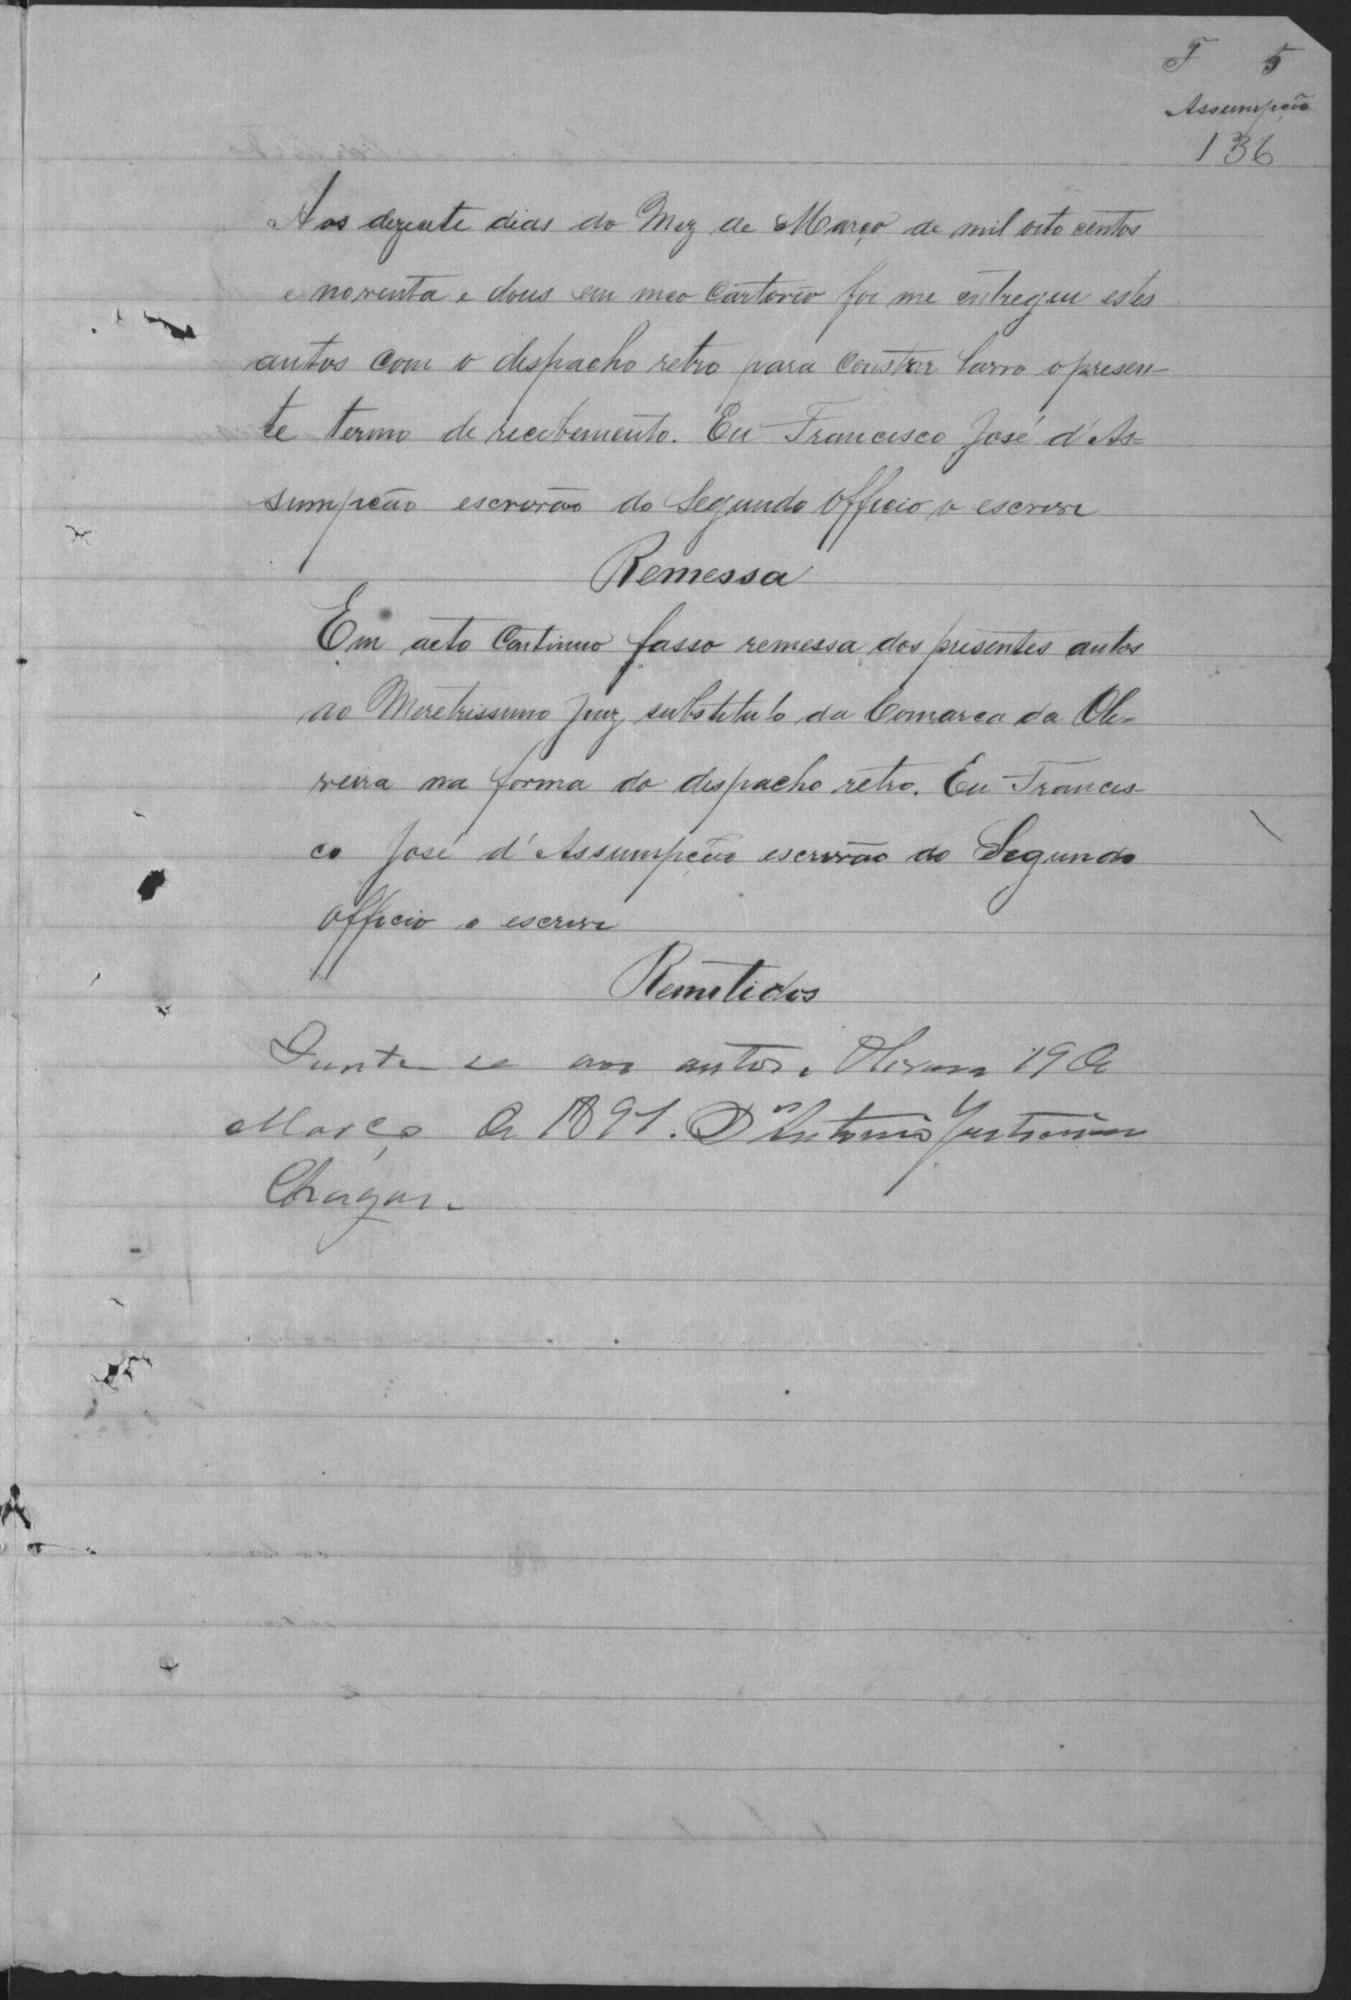 F 5
Assumpção
136
Aos dezesete dias do Mez de Março de mil oito centos
e noventa e dous em meo Cartorio foi me entregue estes
autos com o despacho retro para constar lavro o presen-
te termo de recebimento. Eu Francisco José d'As=
sumpção escrivão do Segundo Officio o escrevi
Remessa
Em acto Continuo fasso remessa dos presentes autos
ao Meretrissimo Juiz substituto da Comarca da Oli-
veira na forma do despacho retro. Eu Francis-
co José d'Assumpção escrivão do Segundo
Officio o escrevi
Remetidos
Junte se aos autos. Oliveira 19 de
Março de 1891. Antonio Justiniano
Chagas.